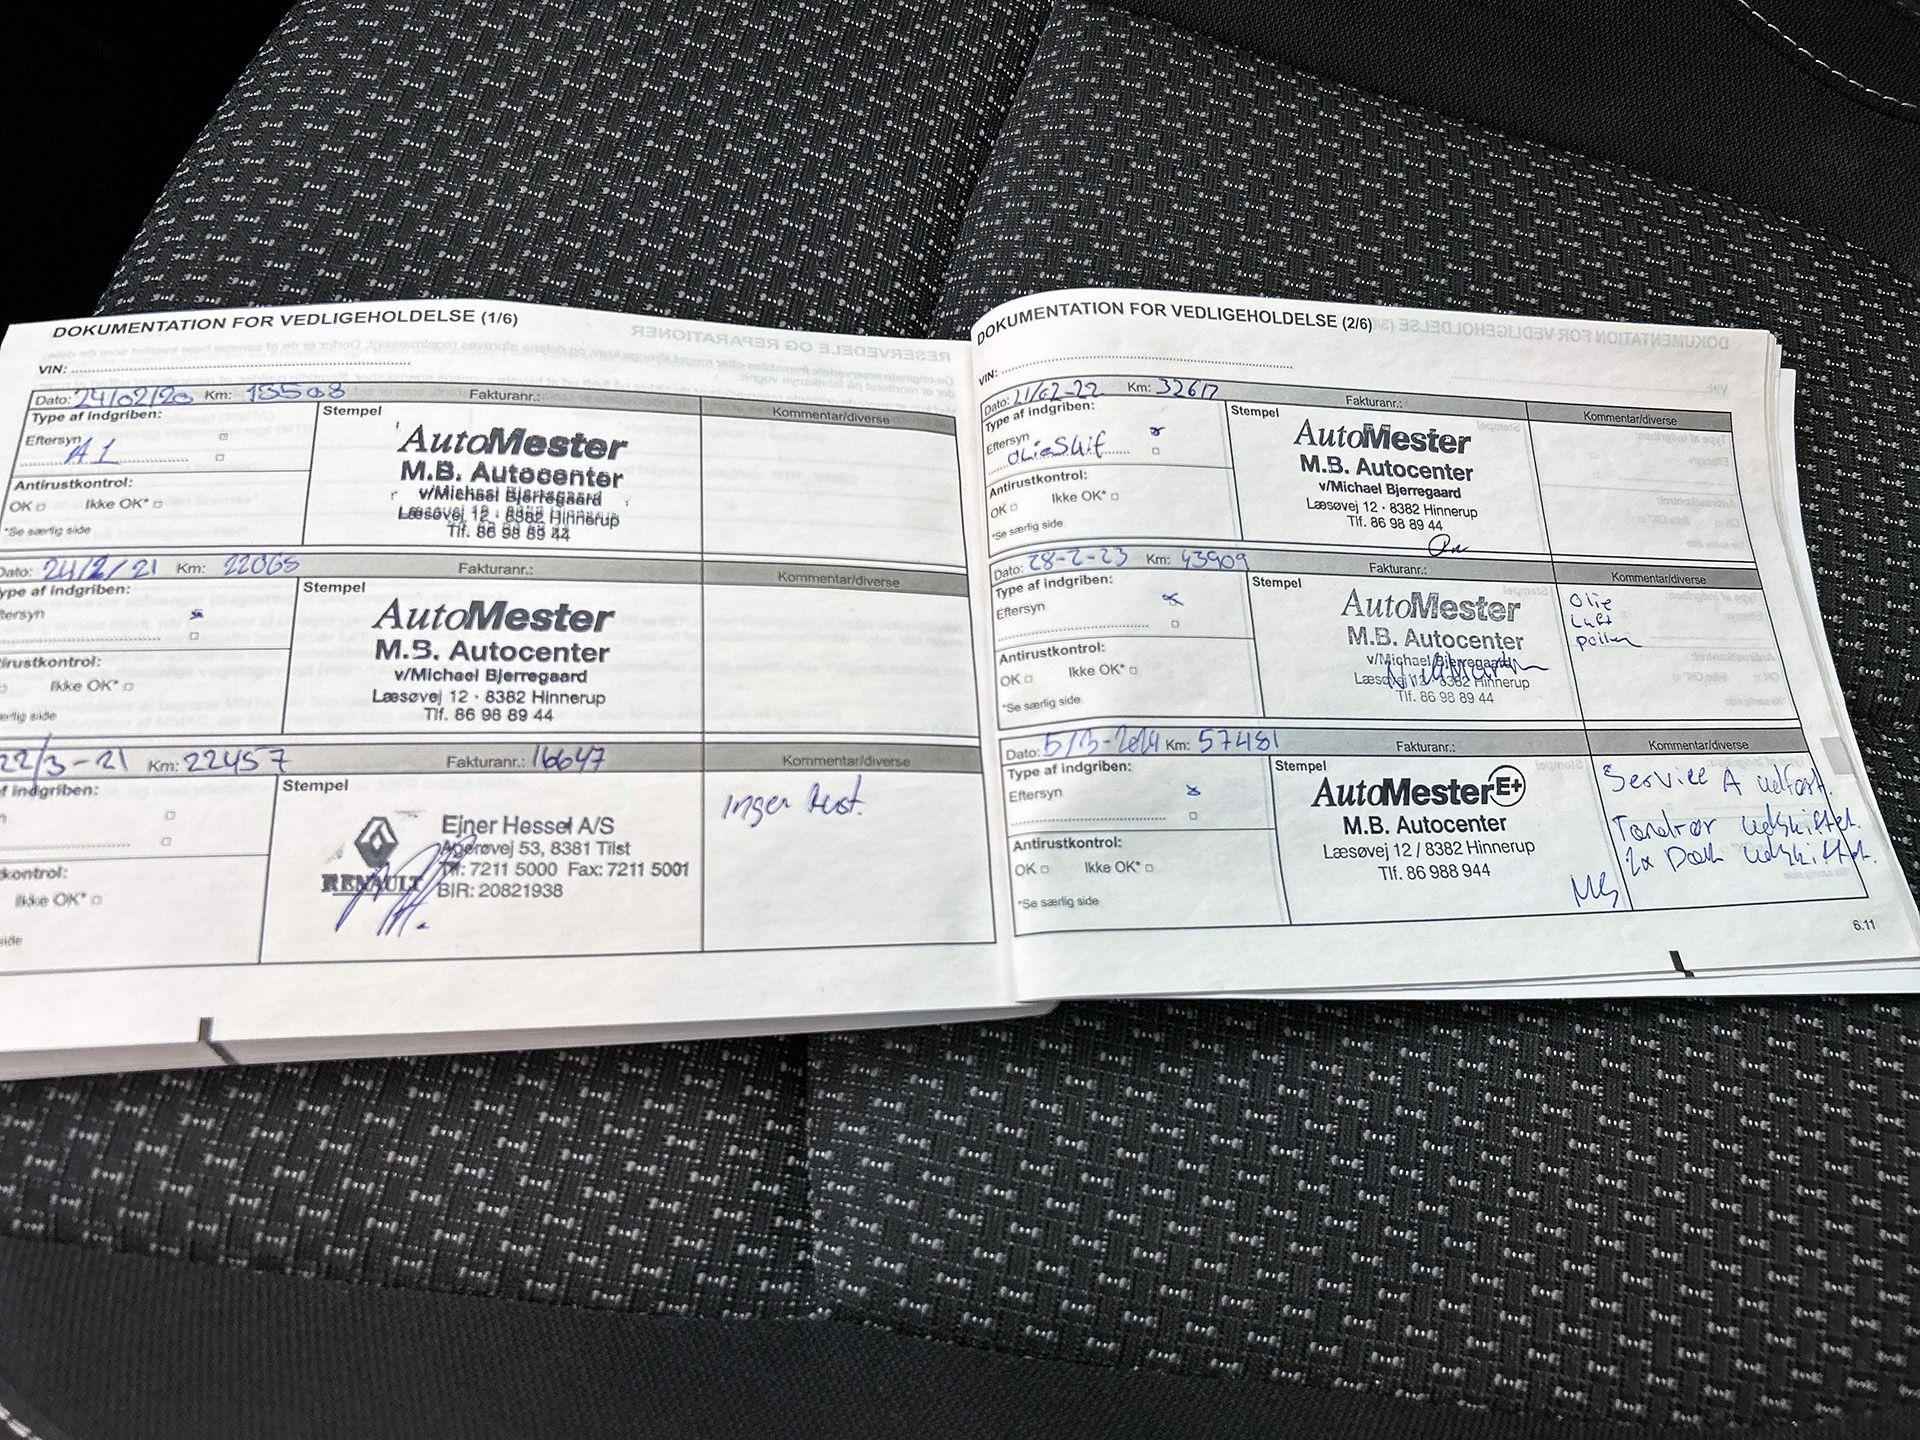 DOKUMENTATION FOR VEDLIGEHOLDELSE (1/6)
VIN:
Dato: 24/02/20 Km: 13508 Fakturanr.:
Type af indgriben:
Stempel
Kommentar/diverse
Eftersyn
A1
Antirustkontrol:
OK Ikke OK*
*Se særlig side
AutoMester
M.B. Autocenter
v/Michael Bjerregaard
Læsøvej 12 · 8382 Hinnerup
Tlf. 86 98 89 44
Dato: 24/2/21 Km: 22065 Fakturanr.:
ype af indgriben:
Stempel
Kommentar/diverse
ftersyn
tirustkontrol:
Ikke OK*
særlig side
AutoMester
M.B. Autocenter
v/Michael Bjerregaard
Læsøvej 12 · 8382 Hinnerup
Tlf. 86 98 89 44
22/3-21 Km: 22457 Fakturanr.: 16647
f indgriben:
Stempel
Kommentar/diverse
kontrol:
Ikke OK*
side
RENAULT
Ejner Hessel A/S
Agerøvej 53, 8381 Tilst
Tlf: 7211 5000 Fax: 7211 5001
BIR: 20821938
Ingen Rust.
DOKUMENTATION FOR VEDLIGEHOLDELSE (2/6)
VIN:
Dato: 21/02-22 Km: 32617 Fakturanr.:
Type af indgriben:
Stempel
Kommentar/diverse
Eftersyn
olieskif
Antirustkontrol:
OK Ikke OK*
*Se særlig side
AutoMester
M.B. Autocenter
v/Michael Bjerregaard
Læsøvej 12 · 8382 Hinnerup
Tlf. 86 98 89 44
Dato: 28-2-23 Km: 43909 Fakturanr.:
Type af indgriben:
Stempel
Kommentar/diverse
Eftersyn
Antirustkontrol:
OK Ikke OK*
*Se særlig side
AutoMester
M.B. Autocenter
v/Michael Bjerregaard
Læsøvej 12 · 8382 Hinnerup
Tlf. 86 98 89 44
Olie
Luft
pollen
Dato: 5/3-2024 Km: 57481 Fakturanr.:
Type af indgriben:
Stempel
Kommentar/diverse
Eftersyn
Antirustkontrol:
OK Ikke OK*
*Se særlig side
AutoMester E+
M.B. Autocenter
Læsøvej 12 / 8382 Hinnerup
Tlf. 86 988 944
Service A udført.
Tændrør udskiftet.
2x Dæk udskiftet.
6.11